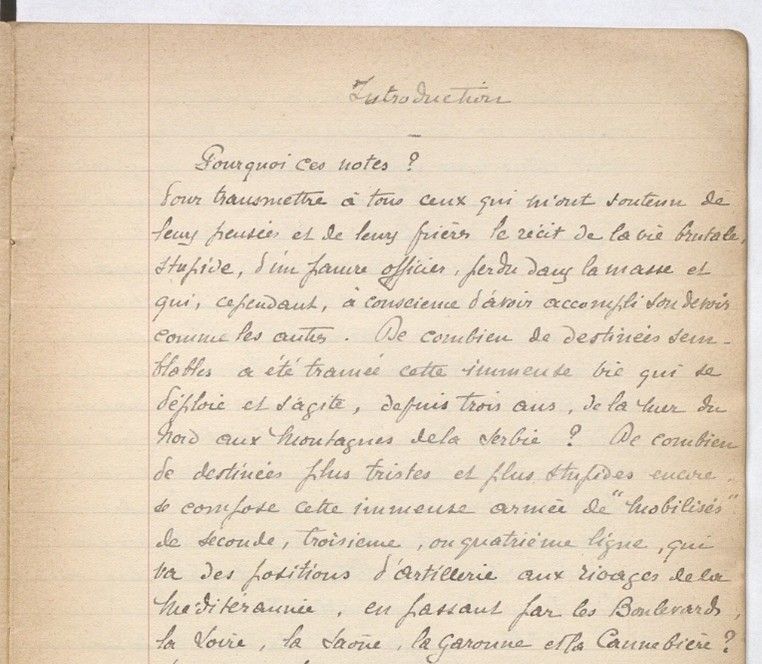 Introduction
Pourquoi ces notes ?
Pour transmettre à tous ceux qui m'ont soutenu de
leurs pensées et de leurs prières le récit de la vie brutale,
stupide, d'un pauvre officier, perdu dans la masse et
qui, cependant, à conscience d'avoir accompli son devoir
comme les autres. De combien de destinées sem-
blables a été tramée cette immense vie qui se
déploie et s'agite, depuis trois ans, de la mer du
Nord aux Montagnes de la Serbie ? De combien
de destinées plus tristes et plus stupides encore.
se compose cette immense armée de "mobilisés"
de seconde, troisieme, ou quatrième ligne, qui
va des positions d'artillerie aux rivages de la
Méditérannée, en passant par les Boulevards,
la Loire, la Saône, la Garonne et la Cannebière ?